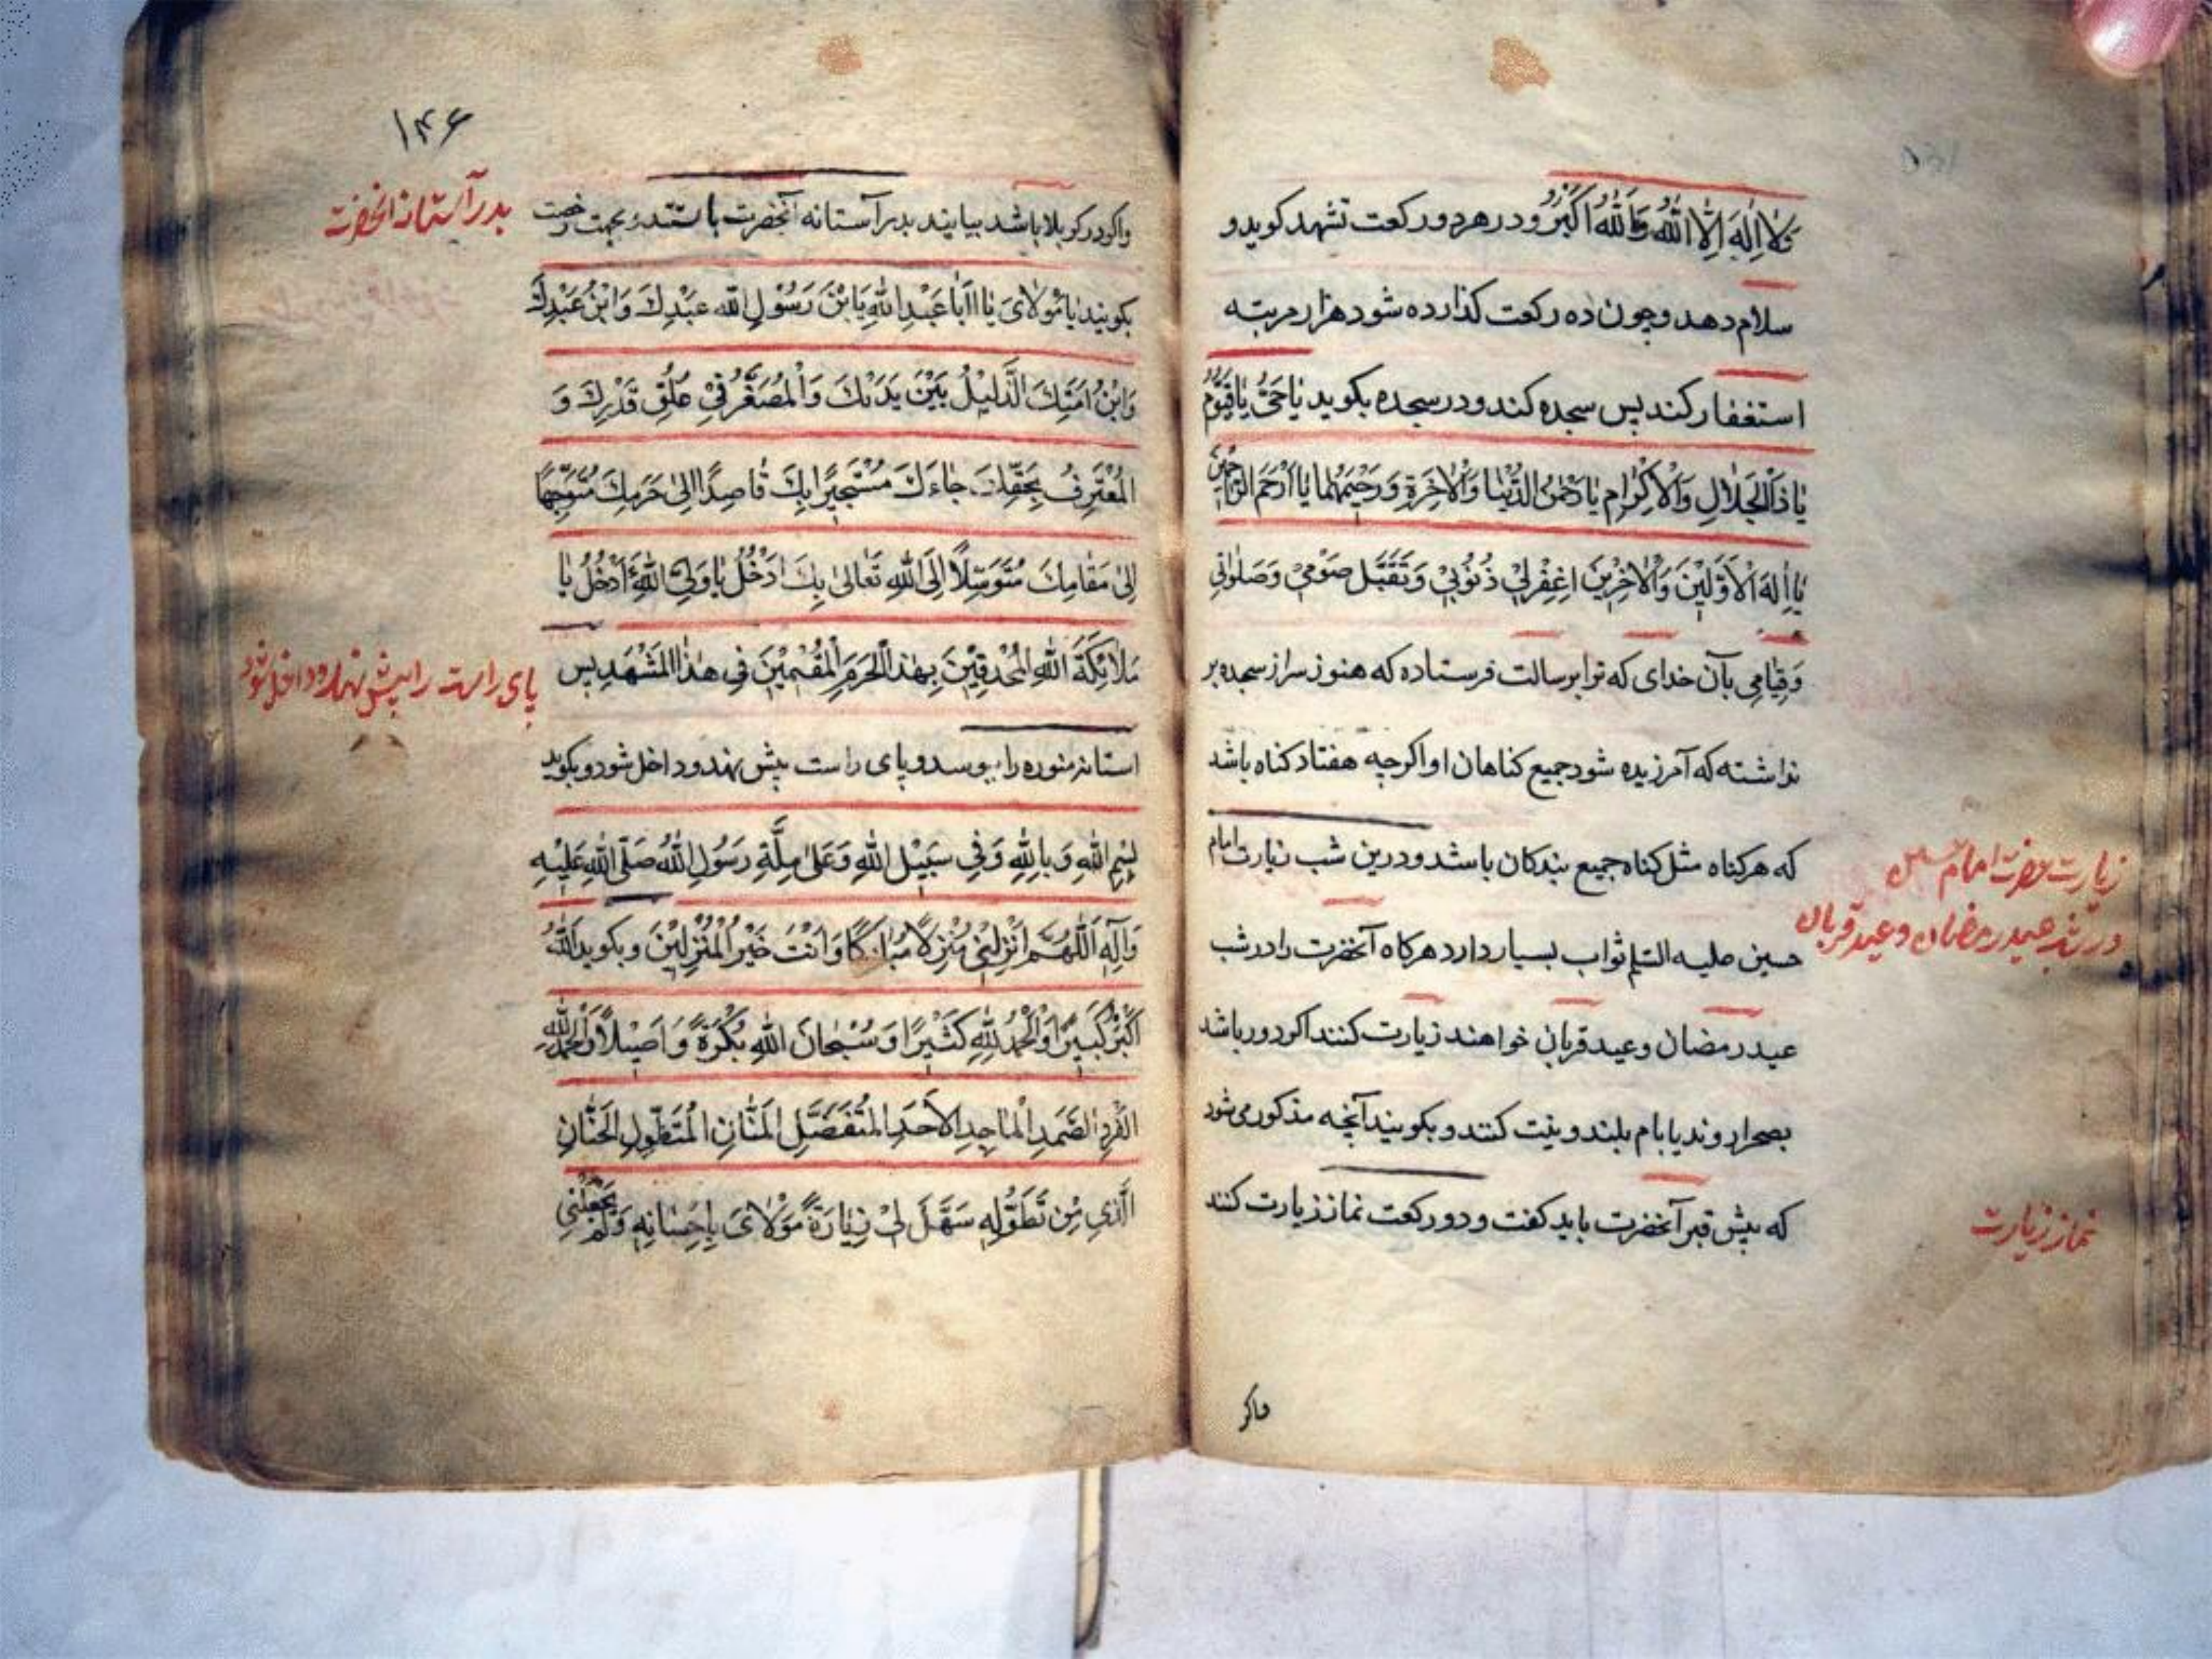 وَلَا اِلٰهَ اِلَّا اللّٰهُ وَاللّٰهُ اَكْبَرُ و در هر دو ركعت تشهد كويد و
سلام دهد و چون ده ركعت كذارده شود هزار مرتبه
استغفار كند پس سجده كند و در سجده بكويد يٰا حَىُّ يٰا قَيُّومُ
يٰا ذَا الْجَلٰالِ وَالْاِكْرٰامِ يٰا رَحْمٰنَ الدُّنْيٰا وَالْاٰخِرَةِ وَرَحيمَهُمٰا يٰا اَرْحَمَ الرّٰاحِمينَ
يٰا اِلٰهَ الْاَوَّلينَ وَالْاٰخِرينَ اِغْفِرْلي ذُنُوبي وَتَقَبَّل صَوْمي وَصَلٰوتي
وَقِيٰامِي بآن خداى كه ترا برسالت فرستاده كه هنوز سر از سجده بر
نداشته كه آمرزيده شود جميع كناهان او اكرچه هفتاد كناه باشد
كه هر كناه مثل كناه جميع بندكان باشد و درين شب زيارت امام
حسين عليه السلم ثواب بسيار دارد هركاه آنحضرت را در شب
زيارت حضرت امام حسين
در شب عيد رمضان و عيد قربان
عيد رمضان و عيد قربان خواهند زيارت كنند اكر دور باشد
بصحرا روند يا بام بلند و نيت كنند و بكويند آنچه مذكور مى شود
كه پيش قبر آنحضرت بايد كفت و دو ركعت نماز زيارت كنند
نماز زيارت
واكر
۱۴۶
واكر در كربلا باشد بيايند بدر آستانه آنحضرت باستند و بجهت رخصت
بدر آستانه انحضرت
بكويند يٰا مَوْلٰاىَ يٰا اَبٰا عَبْدِ اللّٰهِ يَا بْنَ رَسُوْلِ اللّٰه عَبْدِكَ وَابْنُ عَبْدِكَ
وَابْنُ اَمَتِكَ الَّذَليْلُ بَيْنَ يَدَيْكَ وَالْمُصَغَّرُ فِيْ عُلُوِّ قَدْرِكَ وَ
الْمُعْتَرِفُ بِحَقِّكَ جٰاءَكَ مُسْتَجيْرًا بِكَ قٰاصِدًا اِلىٰ حَرَمِكَ مُتَوَجِّهًا
اِلىٰ مَقٰامِكَ مُتَوَسِّلًا اِلَى اللّٰهِ تَعٰالىٰ بِكَ ءَاَدْخُلُ يٰا وَلِيَّ اللّٰهِ ءَاَدْخُلُ يٰا
مَلٰائِكَةَ اللّٰهِ الْمُحْدِقيْنَ بِهٰذَا الْحَرَمِ الْمُقيْمِيْنَ فِى هٰذَا الْمَشْهَدِ پس
پاى راست را پيش نهد و داخل شود
استانه منوره را ببوسد و پاى راست پيش نهد و داخل شود و بكويد
بِسْمِ اللّٰهِ وَبِاللّٰهِ وَفِى سَبيْلِ اللّٰهِ وَعَلىٰ مِلَّةِ رَسُوْلِ اللّٰهِ صَلَّى اللّٰهُ عَلَيْهِ
وَآلِهِ اَللّٰهُمَّ اَنْزِلْنِىْ مُنْزَلًا مُبٰارَكًا وَاَنْتَ خَيْرُ الْمُنْزِلِيْنَ و بكويد اَللّٰهُ
اَكْبَرُ كَبيْرًا وَالْحَمْدُ لِلّٰهِ كَثيْرًا وَسُبْحٰانَ اللّٰهِ بُكْرَةً وَاَصيْلًا وَالْحَمْدُلِلّٰهِ
الْفَرْدِ الصَّمَدِ الْمٰاجِدِ الْاَحَدِ الْمُتَفَضِّلِ الْمَنّٰانِ الْمُتَطَوِّلِ الْحَنّٰانِ
الَّذِى مِنْ تَطَوُّلِهِ سَهَّلَ لِيْ زِيٰارَةَ مَوْلٰاىَ بِاِحْسٰانِهِ وَلَمْ يَجْعَلْنِي